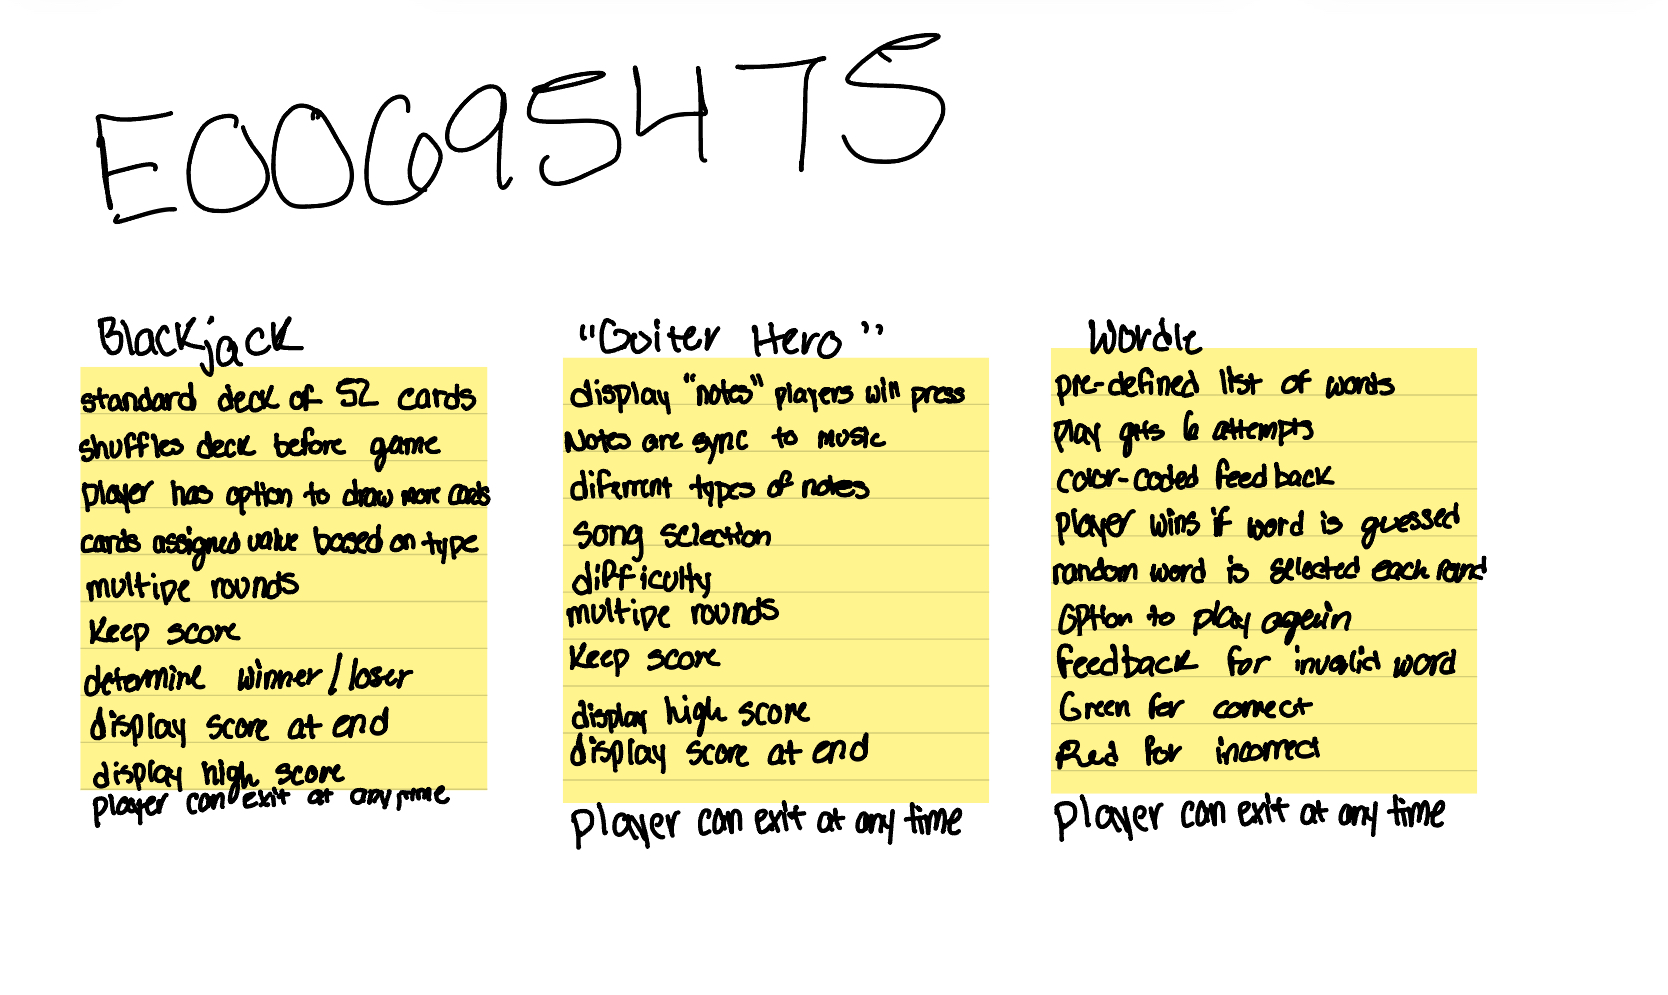 E00695475
Blackjack
standard deck of 52 cards
shuffles deck before game
player has option to draw more cards
cards assigned value based on type
multipe rounds
Keep score
determine winner/loser
display score at end
display high score
player can exit at any time
"Guiter Hero"
display "notes" players will press
Notes are sync to music
different types of notes
song selection
difficulty
multipe rounds
Keep score
display high score
display score at end
player can exit at any time
Wordle
pre-defined list of words
play gets 6 attempts
color-coded feedback
player wins if word is guessed
random word is selected each round
option to play again
feedback for invalid word
Green for correct
Red for incorrect
player can exit at any time